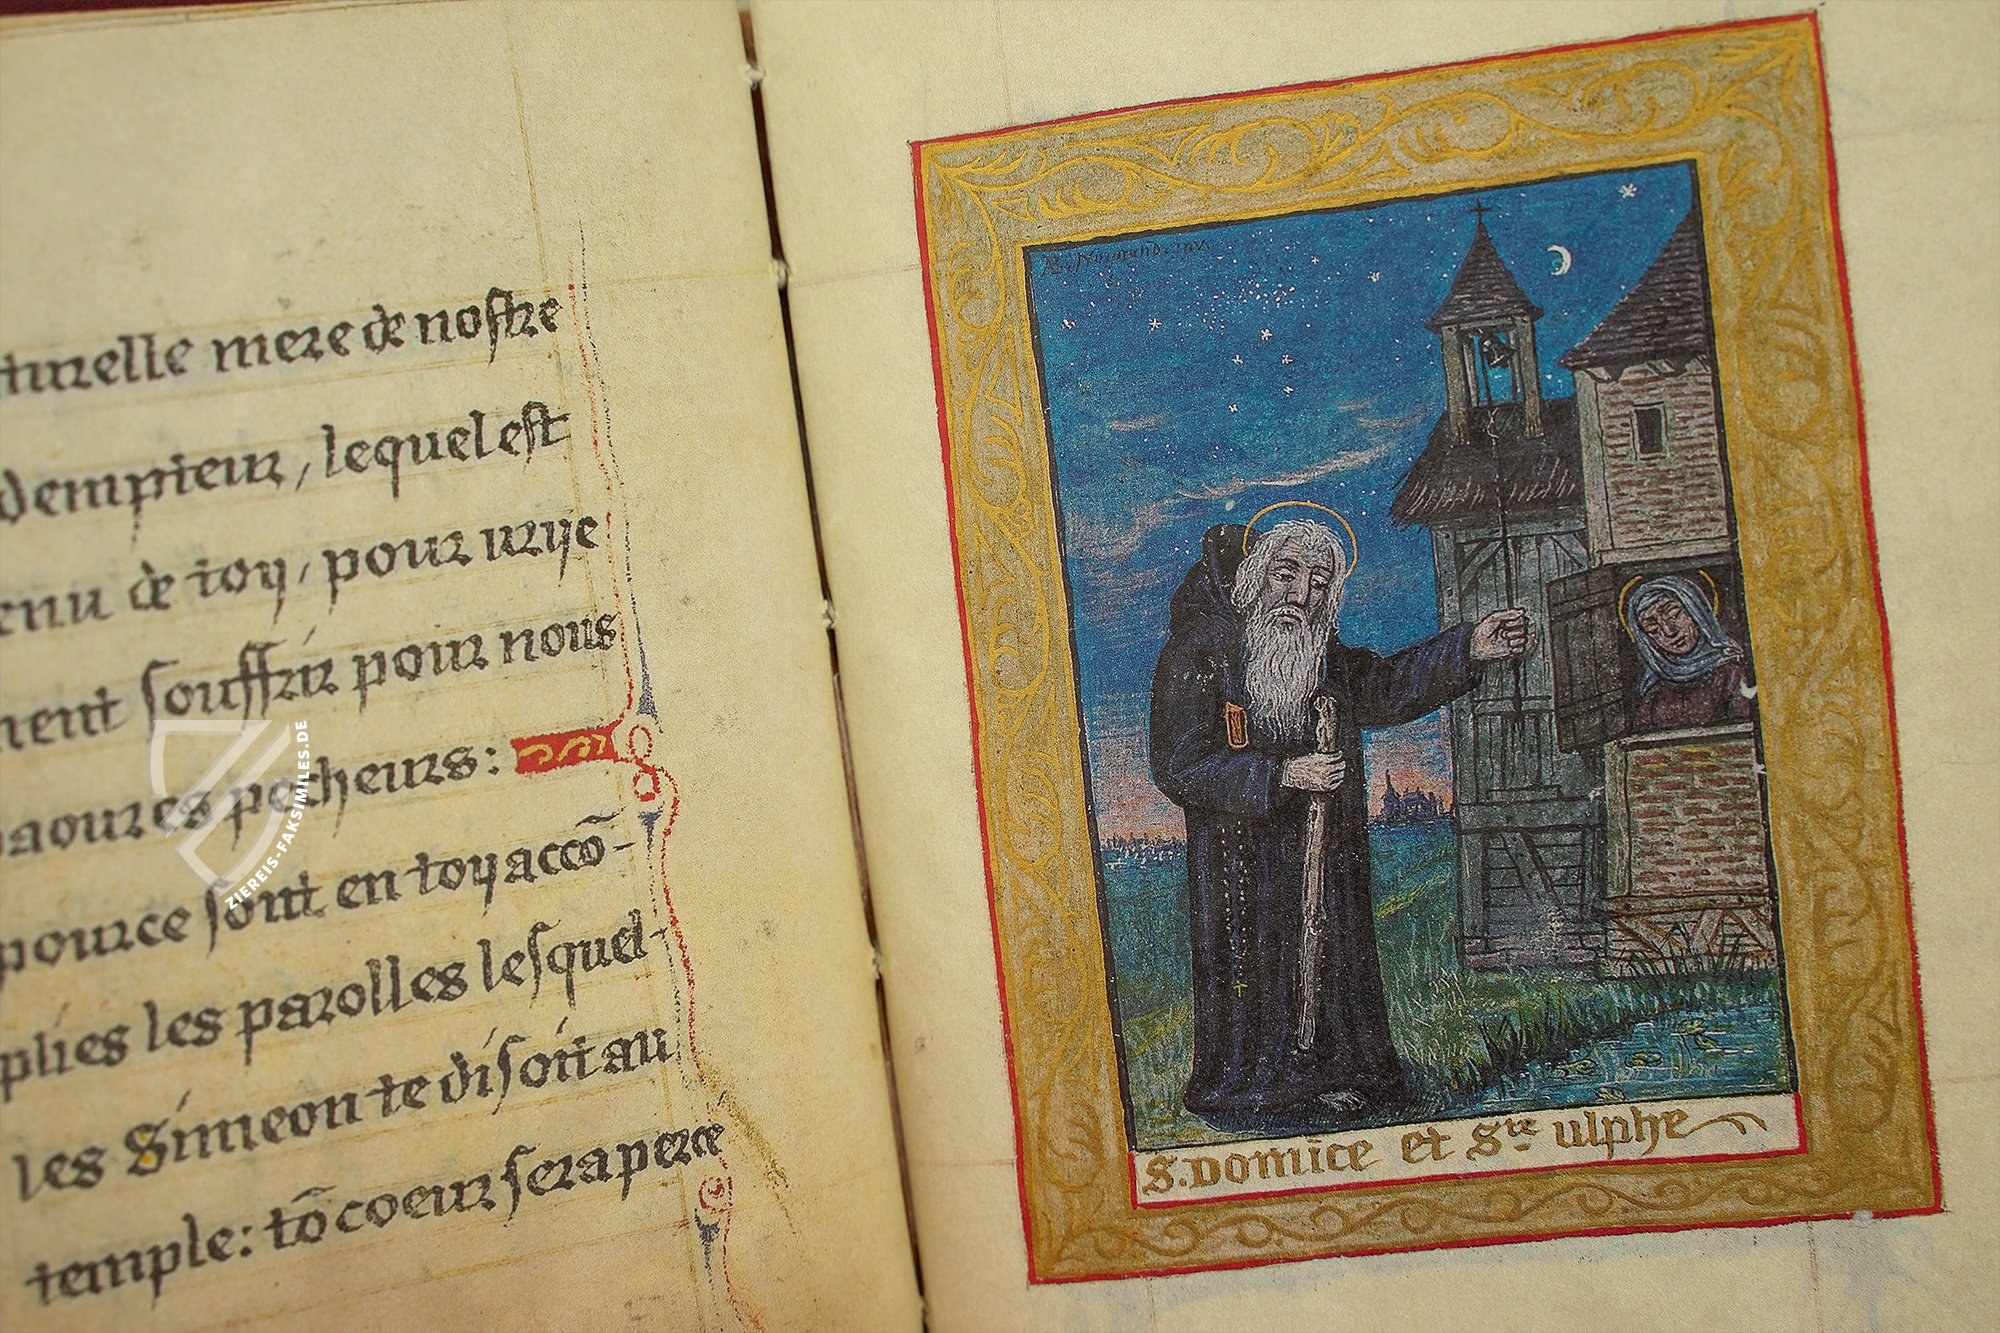 turelle mere de nostre
dempteur, lequel est
enu de toy, pour vrye
ment souffrir pour nous
paoures pecheurs:
pource sont en toy accō-
plies les parolles lesquel-
les Simeon te disoit au
temple: tō coeur sera perce
S. Domice et Ste ulphe
ZIEREIS-FAKSIMILES.DE